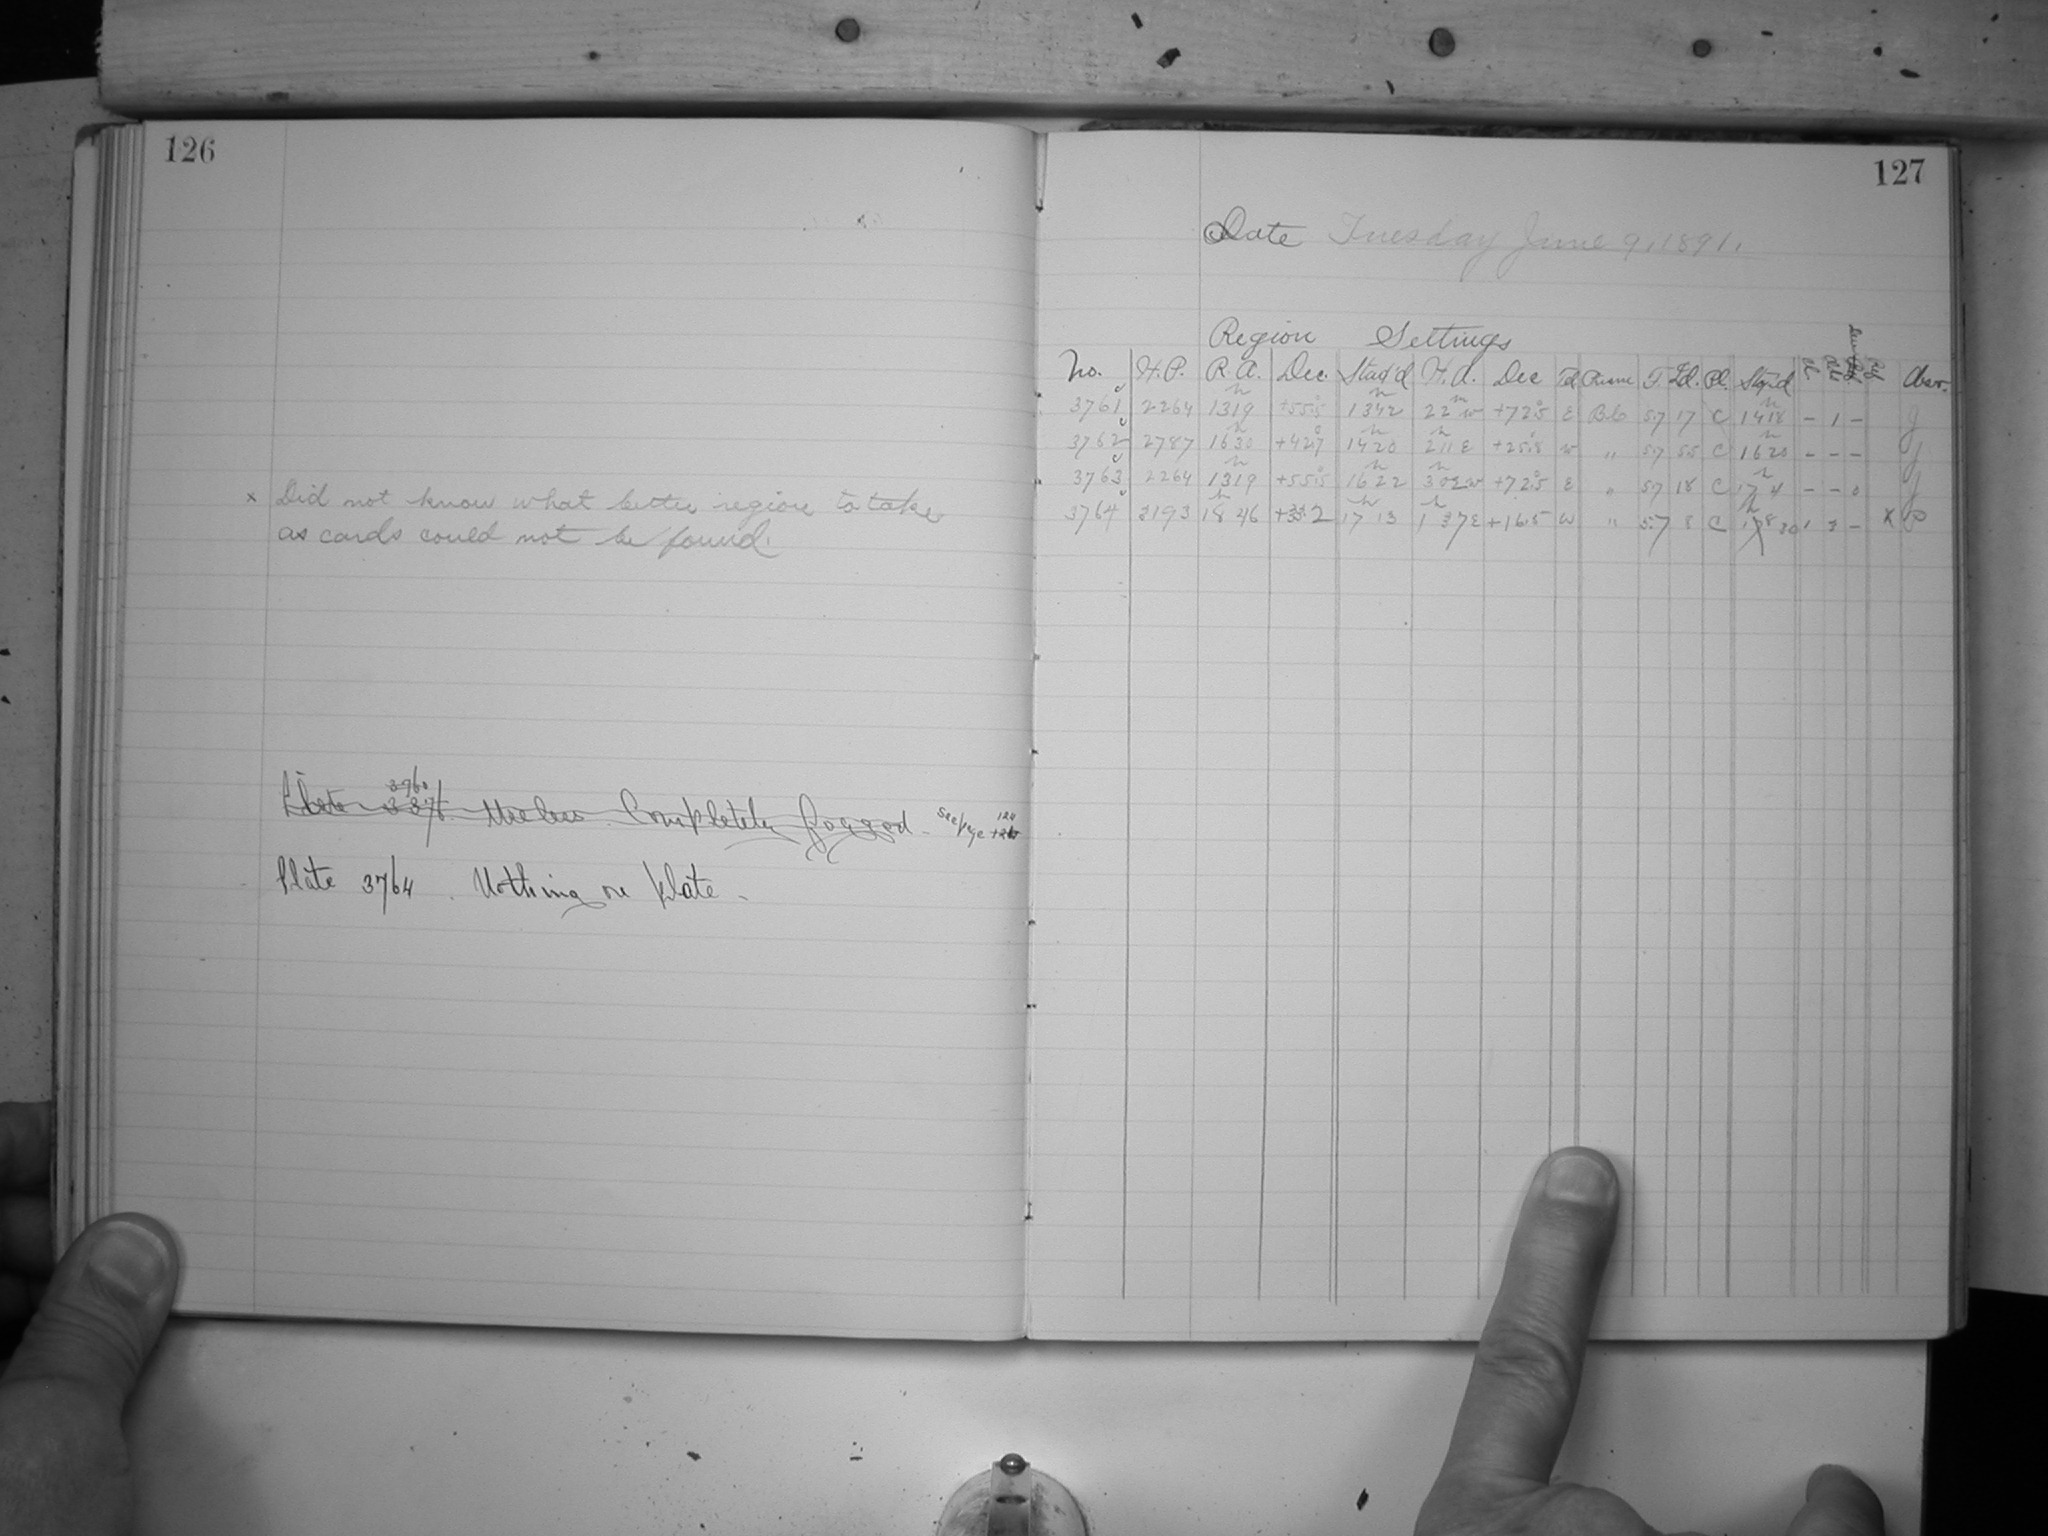 126
x Did not know what better region to take
as cards could not be found.
3760
Plate Useless. Completely fogged. See page 124
Plate 3764. Nothing on plate.
127
Date Tuesday June 9, 1891.
Region Settings
No. H.P. R.A. Dec. Stad'd H.A. Dec Td Prism T. Id. Pl. Stop'd Obsr.
3761 2264 13h19 +55°.5 13h42 22m W +72°.5 E B.C 57 17 C 14h18 - 1 - J
3762 2787 16h30 +42°.7 14h20 2h11 E +25°.8 W " 57 55 C 16h20 - - - J
3763 2264 13h19 +55°.5 16h22 3h02 W +72°.5 E " 57 18 C 17h4 - - 0 J
3764 3193 18h46 17h13 1h37 E +16.5 W " 57 8 C 30 1 3 - x P